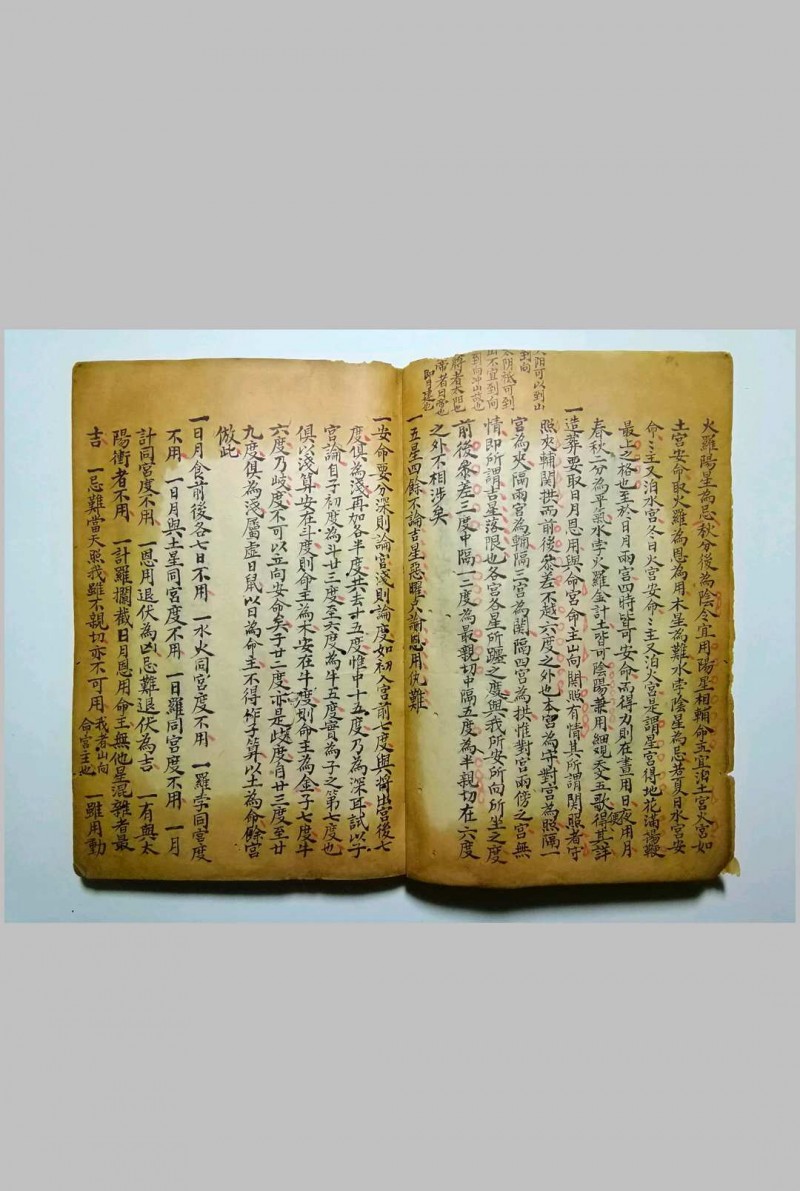 火羅陽星為忌秋分後為陰令宜用陽星相輔命五宜泊土宮火宮如
土宮安命取火羅為恩為用木星為難水孛陰星為忌若夏日水宮安
命〻主又泊水宮冬日火宮安命〻主又泊火宮是謂星宮得地花滿揚鞭
最上之格也至於日月兩宮四時皆可安命而得力則在晝用日夜用月
春秋二分為平氣水孛火羅金計土皆可陰陽兼用細观天文五歌便得其詳
一造葬要取日月恩用與命宮命主山向関照有情其所謂関照者守
照夾輔関拱而前後參差不越六度之外也本宮為守對宮為照隔一
宮為夾隔兩宮為輔隔三宮為関隔四宮為拱惟對宮兩傍之宮無
情即所謂吉星落限也各宮各星所躔之度與我所安所向所坐之度
前後參差三度中隔一二度為最親切中隔五度為半親切在六度
之外不相涉矣
太陽可以到山
到向
太陰祗可到
山不宜到向
到向冲山故也
將者太陽也
帝者日帝也
即日建也
一五星四餘不論吉星惡曜只論恩用仇難
一安命要分深則論宮淺則論度如初入宮前七度與將出宮後七
度俱為淺再加各半度共去十五度惟中十五度乃為深耳試以子
宮論自子初度為斗廿三度至六度為牛五度實為子之第七度也
俱以淺算安在斗度則命主為木安在牛度則命主為金子七度牛
六度乃岐度不可以立向安命矣子廿二度亦是岐度自廿三度至廿
九度俱為淺屬虚日鼠以日為命主不得作子算以土為命餘宮
倣此
一日月食前後各七日不用　一水火同宮度不用　一羅孛同宮度
不用　一日月與土星同宮度不用　一日羅同宮度不用　一月
計同宮度不用　一恩用退伏為凶忌難退伏為吉　一有與太
陽衝者不用　一計羅攔截日月恩用命主無他星混雜者最
吉　一忌難當天照我雖不親切亦不可用　我者山向命宮主也　一雖用動